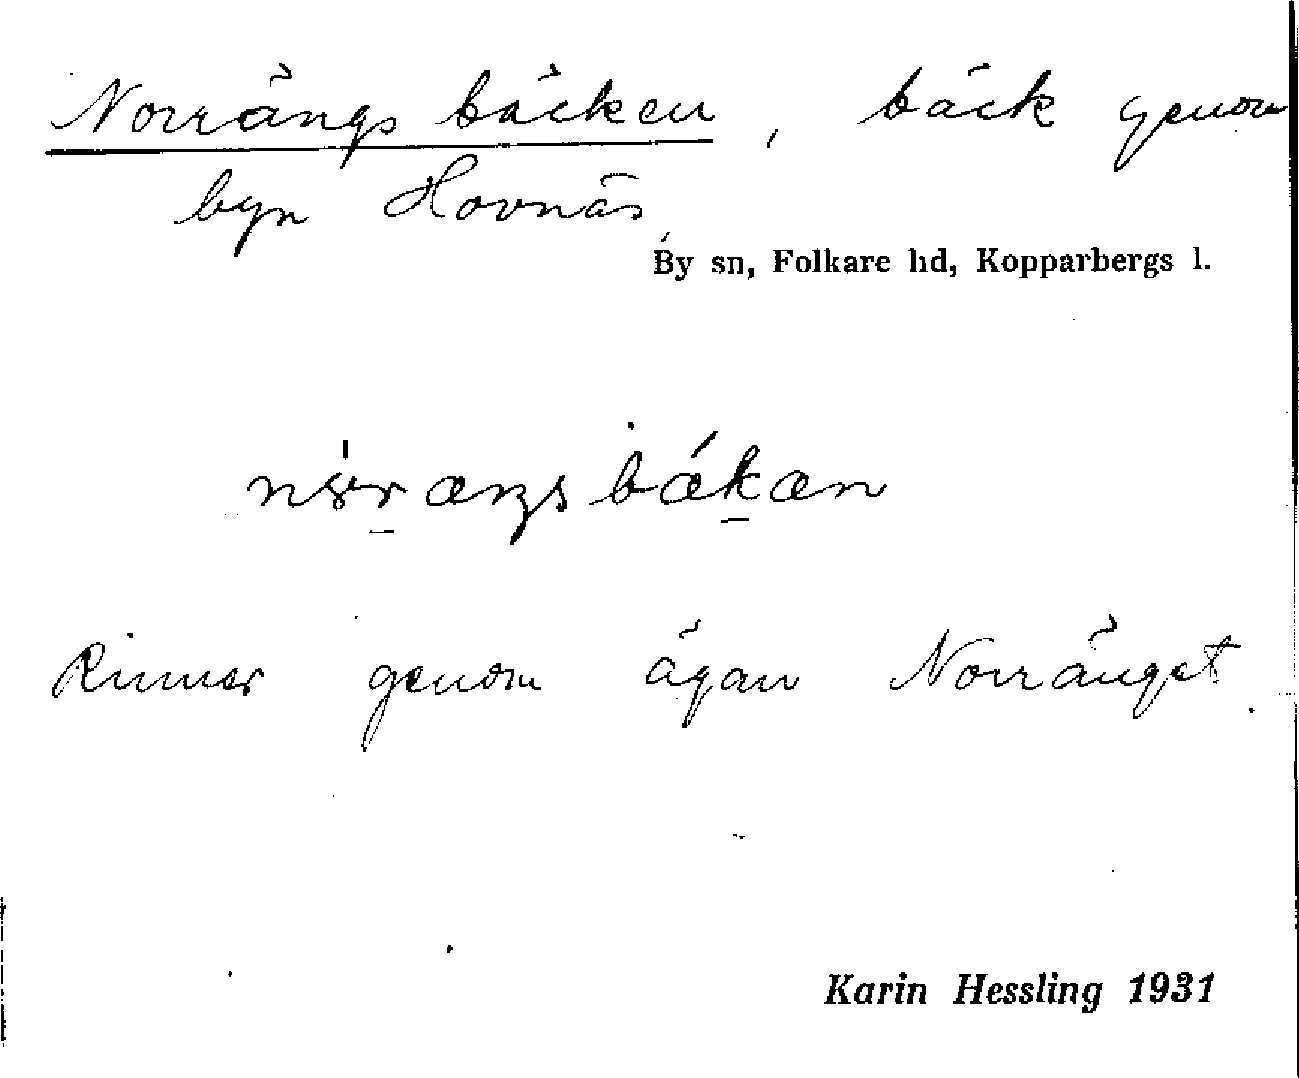 Norrängsbäcken, bäck genom
byn Hovnäs
By sn, Folkare hd, Kopparbergs l.
Rinner genom ägan Norränget.
Karin Hessling 1931